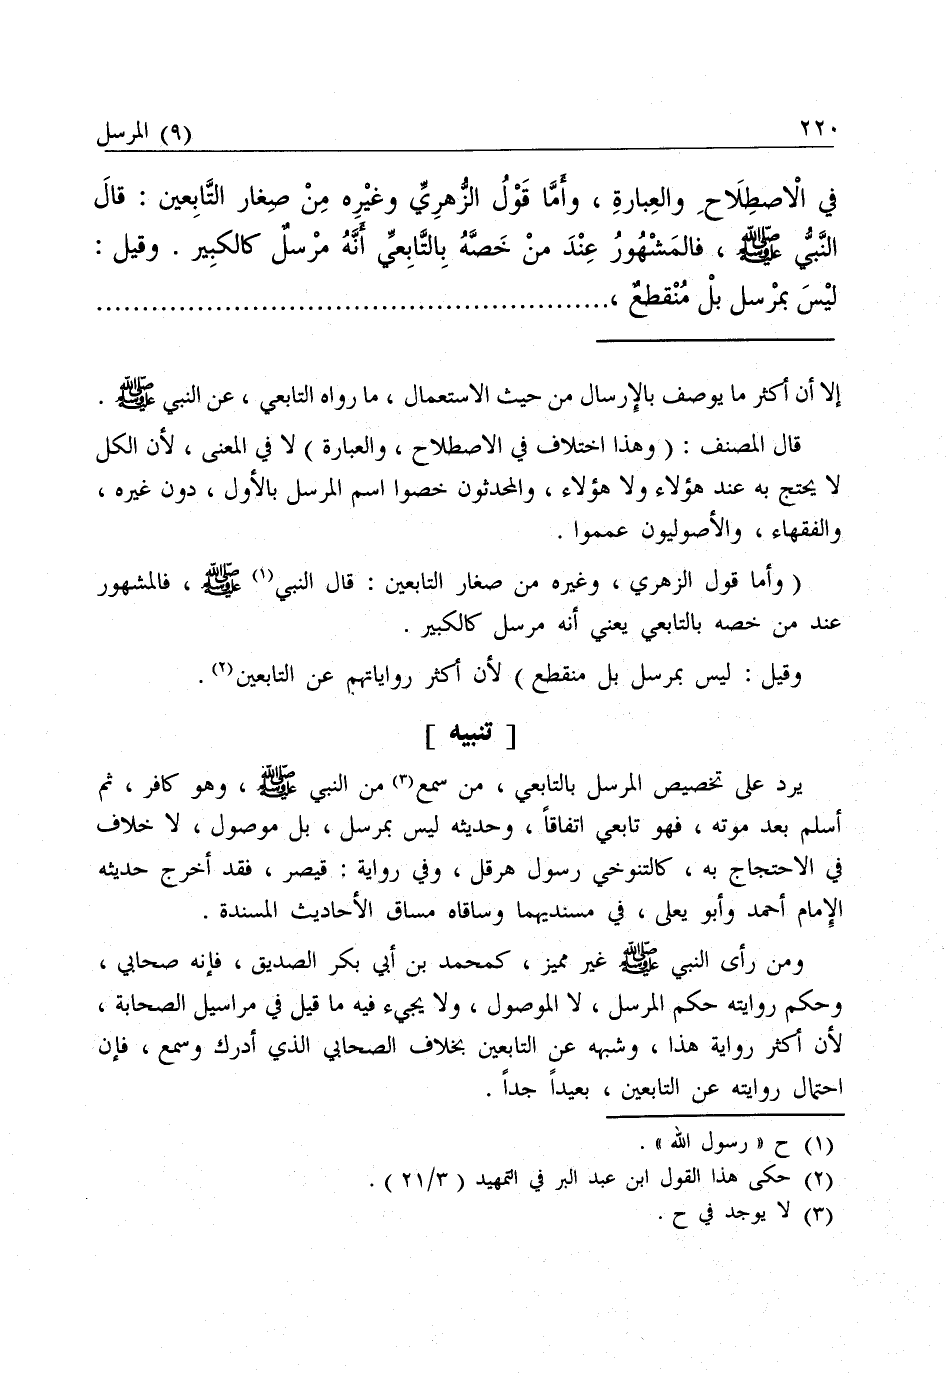 ٢٢٠
(٩) المرسل
في الْاصطِلَاحِ والعِبارةِ ، وأَمَّا قَوْلُ الزُّهرِيِّ وغيْرِه مِنْ صِغار التَّابِعين : قالَ
النَّبيُّ ﷺ ، فالمَشْهُورُ عِنْدَ منْ خَصَّهُ بِالتَّابعيِّ أَنَّهُ مرْسلٌ كالكبِير . وقيل :
ليْسَ بمرْسل بلْ مُنْقطعٌ ،......................................................
إلا أن أكثر ما يوصف بالإرسال من حيث الاستعمال ، ما رواه التابعي ، عن النبي ﷺ .
قال المصنف : ( وهذا اختلاف في الاصطلاح ، والعبارة ) لا في المعنى ، لأن الكل
لا يحتج به عند هؤلاء ولا هؤلاء ، والمحدثون خصوا اسم المرسل بالأول ، دون غيره ،
والفقهاء ، والأصوليون عمموا .
( وأما قول الزهري ، وغيره من صغار التابعين : قال النبي(١) ﷺ ، فالمشهور
عند من خصه بالتابعي يعني أنه مرسل كالكبير .
وقيل : ليس بمرسل بل منقطع ) لأن أكثر رواياتهم عن التابعين(٢) .
[ تنبيه ]
يرد على تخصيص المرسل بالتابعي ، من سمع(٣) من النبي ﷺ ، وهو كافر ، ثم
أسلم بعد موته ، فهو تابعي اتفاقاً ، وحديثه ليس بمرسل ، بل موصول ، لا خلاف
في الاحتجاج به ، كالتنوخي رسول هرقل ، وفي رواية : قيصر ، فقد أخرج حديثه
الإمام أحمد وأبو يعلى ، في مسنديهما وساقاه مساق الأحاديث المسندة .
ومن رأى النبي ﷺ غير مميز ، كمحمد بن أبي بكر الصديق ، فإنه صحابي ،
وحكم روايته حكم المرسل ، لا الموصول ، ولا يجيء فيه ما قيل في مراسيل الصحابة ،
لأن أكثر رواية هذا ، وشبهه عن التابعين بخلاف الصحابي الذي أدرك وسمع ، فإن
احتمال روايته عن التابعين ، بعيداً جداً .
(١) ح « رسول الله » .
(٢) حكى هذا القول ابن عبد البر في التمهيد ( ٢١/٣ ) .
(٣) لا يوجد في ح .